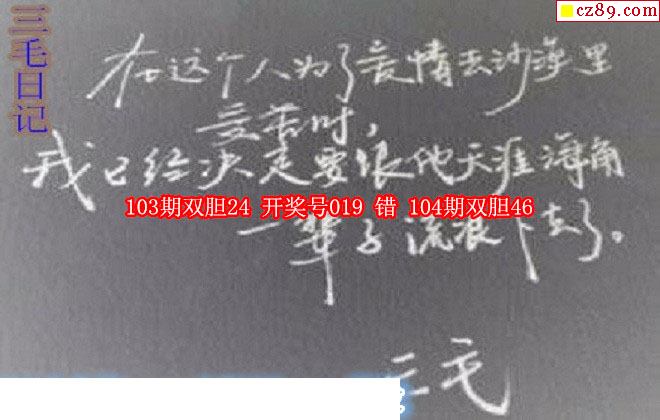 cz89.com
三毛日记
在这个人为了爱情去沙漠里
受苦时,
我已经决定要跟他天涯海角
103期双胆24 开奖号019 错 104期双胆46
一辈子流浪下去了。
三毛